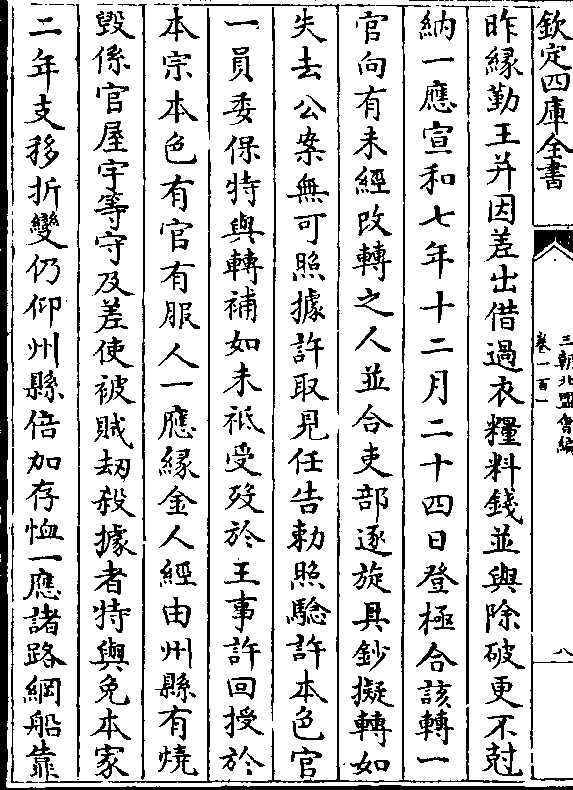 欽定四庫全書
三朝北盟會編
卷一百一
八
昨緣勤王并因差出借過衣糧料錢並與除破更不尅
納一應宣和七年十二月二十四日登極合該轉一
官向有未經改轉之人並合吏部逐旋具鈔擬轉如
失去公案無可照據許取見任告勅照驗許本色官
一員委保特與轉補如未祗受歿於王事許回授於
本宗本色有官有服人一應緣金人經由州縣有燒
毁係官屋宇等守及差使被賊刼殺據者特與免本家
二年支移折變仍仰州縣倍加存恤一應諸路綱船靠